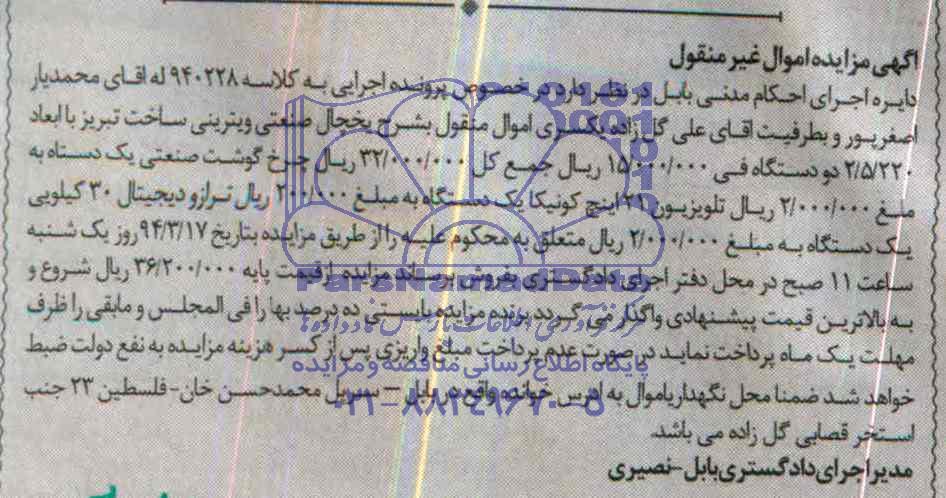 آگهی مزایده اموال غیر منقول
دایره اجرای احکام مدنی بابل در نظر دارد در خصوص پرونده اجرایی به کلاسه ۹۴۰۲۲۸ له اقای محمدیار
اصغرپور و بطرفیت اقای علی گل زاده یکسری اموال منقول بشرح یخچال صنعتی ویترینی ساخت تبریز با ابعاد
۲/۵/۲۲۰ دو دستگاه فی ۱۵/۰۰۰/۰۰۰ ریال جمع کل ۳۲/۰۰۰/۰۰۰ ریال چرخ گوشت صنعتی یک دستاه به
مبلغ ۲/۰۰۰/۰۰۰ ریال تلویزیون ۲۱ اینچ کونیکا یک دستگاه به مبلغ ۲۰۰/۰۰۰ ریال ترازو دیجیتال ۳۰ کیلویی
یک دستگاه به مبلغ ۲/۰۰۰/۰۰۰ ریال متعلق به محکوم علیه را از طریق مزایده بتاریخ ۹۴/۳/۱۷ روز یک شنبه
ساعت ۱۱ صبح در محل دفتر اجرای دادگستری بفروش برساند مزایده از قیمت پایه ۳۶/۲۰۰/۰۰۰ ریال شروع و
به بالاترین قیمت پیشنهادی واگذار می گردد برنده مزایده بایستی ده درصد بها را فی المجلس و مابقی را ظرف
مهلت یک ماه پرداخت نماید در صورت عدم پرداخت مبلغ واریزی پس از کسر هزینه مزایده به نفع دولت ضبط
خواهد شد ضمنا محل نگهداری اموال به ادرس خوانده واقع در بابل – سرپل محمدحسن خان-فلسطین ۲۳ جنب
استخر قصابی گل زاده می باشد.
مدیر اجرای دادگستری بابل-نصیری
ParsNamadData
پایگاه اطلاع رسانی مناقصه و مزایده
۰۲۱-۸۸۳۴۹۶۷۰-۵